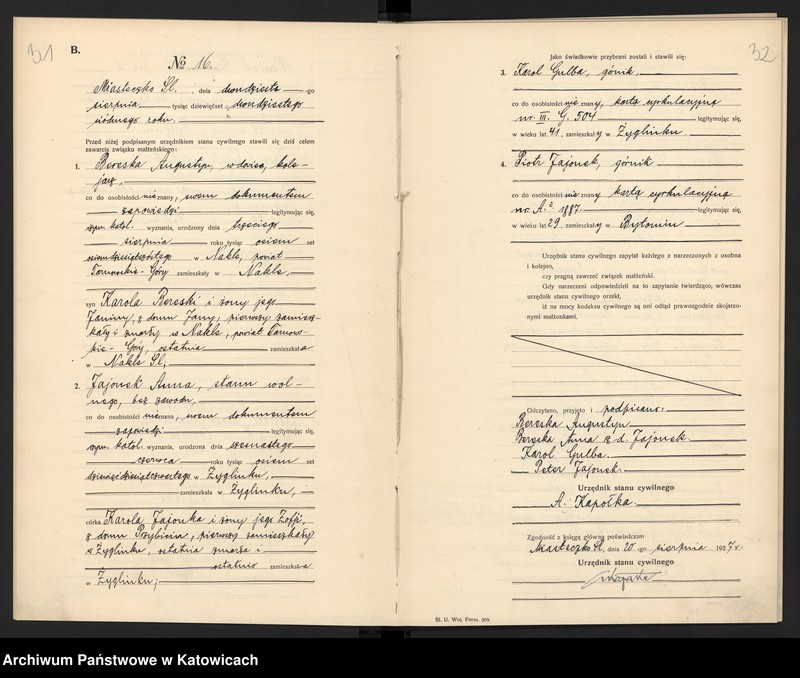 31
B.
No 16.
Miasteczko Śl., dnia dwudziesta -go
sierpnia tysiąc dziewięćset dwudziestego
siódmego roku.
Przed niżej podpisanym urzędnikiem stanu cywilnego stawili się dziś celem
zawarcia związku małżeńskiego:
1. Bereska Augustyn, wdowiec, koło-
co do osobistości nie znany, swem dokumentem
zapowiedzi legitymując się,
rzym. katol. wyznania, urodzony dnia trzeciego
sierpnia roku tysiąc osiem set
w Nakle, powiat
Tarnowskie-Góry zamieszkały w Nakle,
syn Karola Bereski i żony jego
Janiny, z domu Jamy, pierwszy zamiesz-
kały i zmarły w Nakle, powiat Tarnow-
skie-Góry, ostatnia zamieszkała
w Nakle Śl,
2. Jajonek Anna, stanu wol-
nego, bez zawodu,
co do osobistości nieznana, swem dokumentem
zapowiedzi legitymując się,
rzym. katol. wyznania, urodzona dnia
czerwca roku tysiąc osiem set
dziewięćdziesiątegoczwartego w Żyglinku,
zamieszkała w Żyglinku,
córka Karola Jajonka i żony jego Zofji,
z domu pierwszy zamieszkały
w Żyglinku, ostatnia zmarła i
ostatnio zamieszkała
w Żyglinku;
32
Jako świadkowie przybrani zostali i stawili się:
3. Karol Gulba, górnik,
co do osobistości nie znany, kartą cyrkulacyjną
nr. III. G. 504 legitymując się,
w wieku lat 41, zamieszkały w Żyglinku.
4. Piotr Jajonek, górnik
co do osobistości nie znany kartą cyrkulacyjną
nr. A. 2. 1887. legitymując się,
w wieku lat 29, zamieszkały w Bytomiu
Urzędnik stanu cywilnego zapytał każdego z narzeczonych z osobna
i kolejno,
czy pragną zawrzeć związek małżeński.
Gdy narzeczeni odpowiedzieli na to zapytanie twierdząco, wówczas
urzędnik stanu cywilnego orzekł,
iż na mocy kodeksu cywilnego są oni odtąd prawozgodnie skojarzo-
nymi małżonkami.
Odczytano, przyjęto i podpisano:
Bereska Augustyn
Bereska Anna z d. Jajonek.
Karol Gulba.
Peter Jajonek.
Urzędnik stanu cywilnego
A. Kapołka.
Zgodność z księgą główną poświadczam
Miasteczko Śl, dnia 20 -go sierpnia 1927 r.
Urzędnik stanu cywilnego
Śl. U. Woj. Form. 301.
Archiwum Państwowe w Katowicach